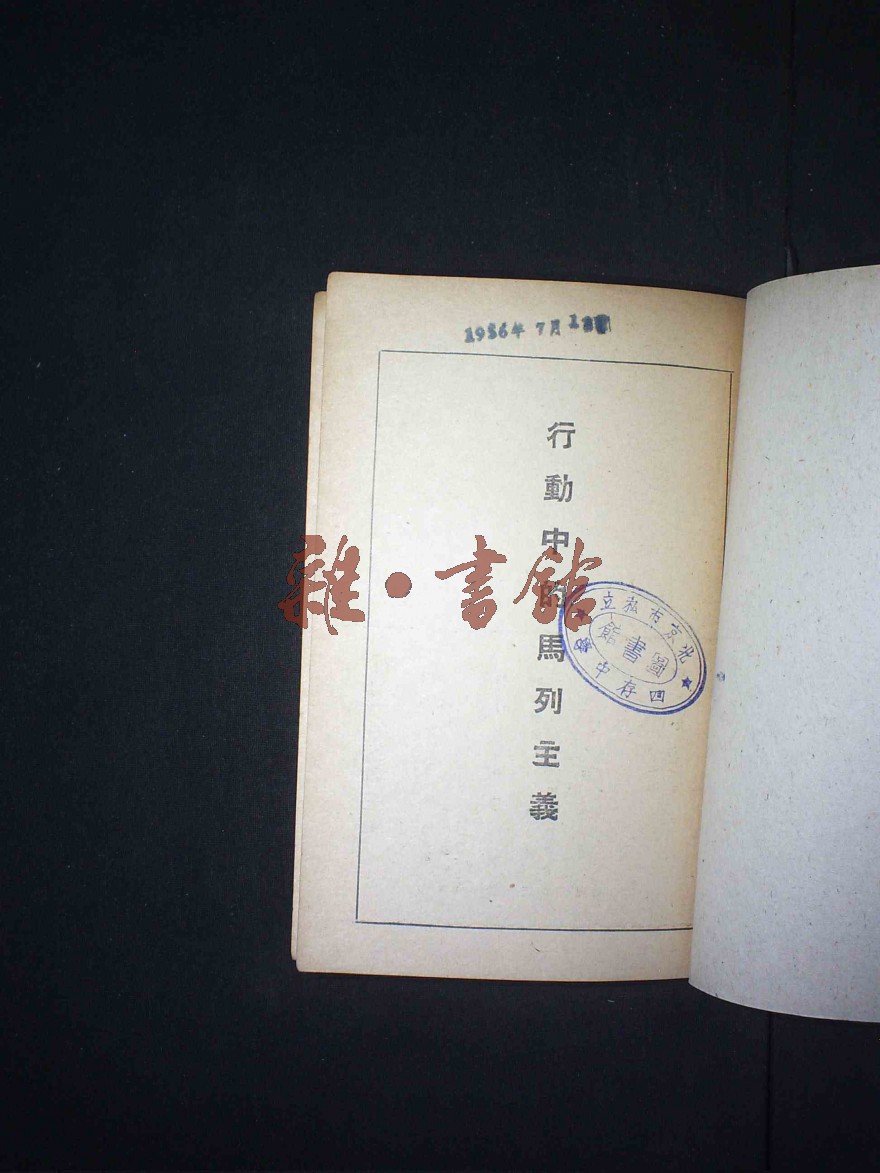 1956年 7月
行動中的馬列主義
雜·書館
北京市私立
四存中學
圖書館